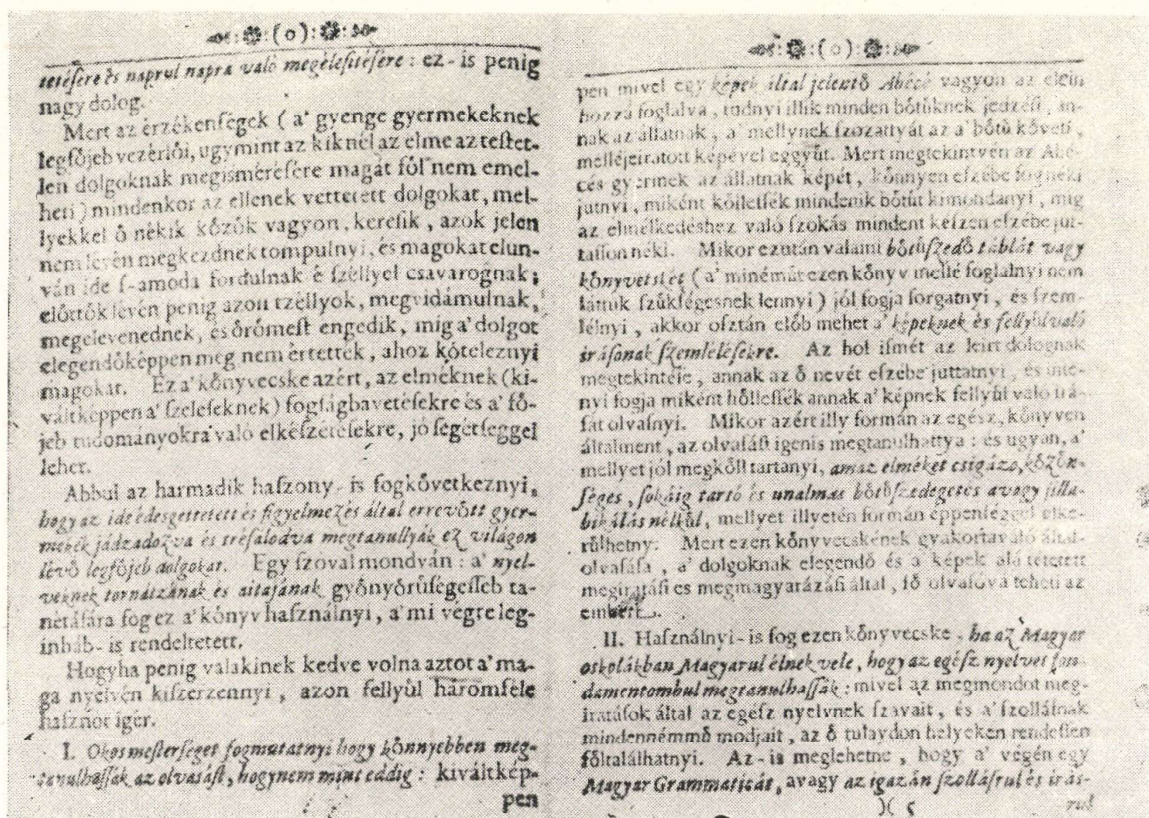 :(o):
tetésere és naprul napra való megélesitésere: ez-is penig
nagy dolog.
Mert az érzékenségek (a' gyenge gyermekeknek
legfőjeb vezérlői, ugymint az kiknél az elme az testet-
len dolgoknak megismérésére magát föl nem emel-
heti) mindenkor az ellenek vettetett dolgokat, mel-
lyekkel ő nékik közök vagyon, keresik, azok jelen
nem lévén megkezdnek tompulnyi, és magokat elun-
ván ide s-amoda fordulnak é széllyel csavarognak;
előttök lévén penig azon tzéllyok, megvidámulnak,
megelevenednek, és örömest engedik, mig a' dolgot
elegendőképpen meg nem értették, ahoz köteleznyi
magokat. Ez a' könyvecske azért, az elméknek (ki-
váltképpen a' szeleseknek) fogságbavetésekre és a' fő-
jeb tudományokra való elkészetésekre, jó segétséggel
lehet.
Abbul az harmadik haszony-is fogkövetkeznyi,
hogy az ide édesgettetett és figyelmezés által errevött gyer-
mekek jádzadozva és tréfalodva megtanullyák ez világon
lévő legföjeb dolgokat. Egy szoval mondván: a' nyel-
veknek tornátzának és aitajának gyönyörüségesseb ta-
nétására fog ez a' könyv használnyi, a' mi végre leg-
inháb-is rendeltetett.
Hogyha penig valakinek kedve volna aztot a' ma-
ga nyelvén kiszerzennyi, azon fellyül háromféle
hasznot igér.
I. Okos mesterséget fogmutatnyi hogy könnyebben meg-
tanulhassák az olvasást, hogynem mint eddig: kiváltkép-
pen
:(o):
pen mivel egy képek által jelentö Abécé vagyon az elein
hozzá foglalva, tudnyi illik minden bötüknek jedzési, an-
nak az állatnak, a' mellynek szozattyát az a' bötü követi,
melléjeiratott képével eggyüt. Mert megtekintvén az Abé-
cés gyermek az állatnak képét, könnyen eszebe fog neki
jutnyi, miként köllessék mindenik bötüt kimondanyi, mig
az elmélkedéshez való szokás mindent készen eszébe jut-
tasson néki. Mikor ezután valami bötüszedö táblát vagy
könyvetslét (a' minémüt ezen könyv mellé foglalnyi nem
láttuk szükségesnek lennyi) jól fogja forgatnyi, és szem-
lélnyi, akkor osztán elöb mehet a' képeknek és fellyülvaló
irásonak szemlélésekre. Az hol ismét az leirt dolognak
megtekintése, annak az ö nevét eszebe juttatnyi, és inte-
nyi fogja miként höllessék annak a' képnek fellyül való irá-
sát olvasnyi. Mikor azért illy formán az egész, könyven
általment, az olvasást igenis megtanulhattya: és ugyan, a'
mellyet jól megköll tartanyi, amaz elméket csigázo, közön-
séges, sokáig tartó és unalmas bötüszedegetés avagy silla-
bikálás nélkül, mellyet illyetén formán éppenséggel elke-
rülhetny. Mert ezen könyvecskének gyakortavaló által-
olvasása, a' dolgoknak elegendö és a képek alá tétetett
megiratási es megmagyarázási által, fö olvasóvá teheti az
embert.
II. Használnyi-is fog ezen könyvecske, ha az Magyar
oskolákban Magyarul élnek vele, hogy az egész nyelvet fun-
damentombul megtanulhassák: mivel az megmondot meg-
iratások által az egész nyelvnek szavait, és a' szollásnak
mindennémmö modjait, az ö tulaydon helyeken rendessen
föltalálhatnyi. Az-is meglehetne, hogy a' végén egy
Magyar Grammaticát, avagy az igazán szollásrul és irás-
)( 5 rul